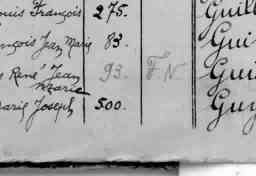 ouis François 275. Guill
ançois Jean Marie 83. Gui
s René Jean 93. F. N. Gui
Marie
Marie Joseph 500. Guy